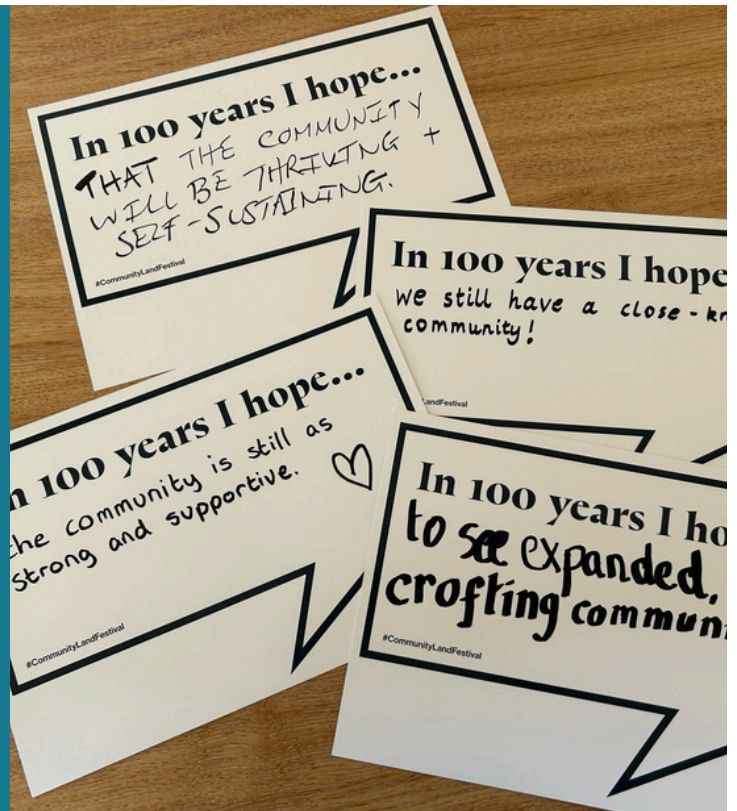 In 100 years I hope...
THAT THE COMMUNITY
WILL BE THRIVING +
SELF-SUSTAINING.
#CommunityLandFestival
In 100 years I hope
we still have a close-kn
community!
LandFestival
n 100 years I hope...
the community is still as
strong and supportive.
#CommunityLandFestival
In 100 years I ho
to see expanded,
crofting commun
#CommunityLandFestival